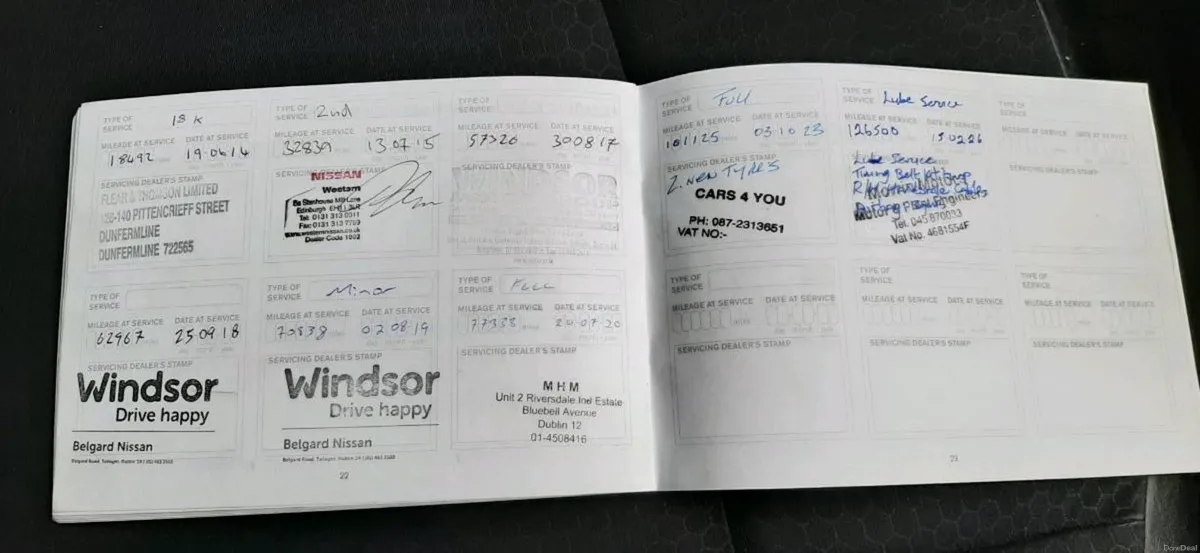 TYPE OF SERVICE 1st
MILEAGE AT SERVICE DATE AT SERVICE
18492 19 06 14
SERVICING DEALER'S STAMP
FLEAR & THOMSON LIMITED
128-140 PITTENCRIEFF STREET
DUNFERMLINE
DUNFERMLINE 722565
TYPE OF SERVICE 2nd
MILEAGE AT SERVICE DATE AT SERVICE
32839 13 07 15
NISSAN
Western
Edinburgh
Tel: 0131 313 0311
Fax: 0131 313 7759
www.westernnissan.co.uk
Dealer Code 1092
TYPE OF SERVICE
MILEAGE AT SERVICE DATE AT SERVICE
57326 30 08 17
SERVICING DEALER'S STAMP
TYPE OF SERVICE
MILEAGE AT SERVICE DATE AT SERVICE
62967 25 09 18
SERVICING DEALER'S STAMP
Windsor
Drive happy
Belgard Nissan
TYPE OF SERVICE Minor
MILEAGE AT SERVICE DATE AT SERVICE
70838 02 08 19
SERVICING DEALER'S STAMP
Windsor
Drive happy
Belgard Nissan
TYPE OF SERVICE FULL
MILEAGE AT SERVICE DATE AT SERVICE
77338 20 07 20
SERVICING DEALER'S STAMP
MHM
Unit 2 Riversdale Ind Estate
Bluebell Avenue
Dublin 12
01-4508416
22
TYPE OF SERVICE FULL
MILEAGE AT SERVICE DATE AT SERVICE
101125 03 10 23
SERVICING DEALER'S STAMP
2. NEW TYRES
CARS 4 YOU
PH: 087-2313651
VAT NO:-
TYPE OF SERVICE Lube Service
MILEAGE AT SERVICE DATE AT SERVICE
126500 15 02 26
Lube Service
Timing Belt Kit
Motor Engineers
Tel. 045 870033
Vat No. 4681554F
TYPE OF SERVICE
MILEAGE AT SERVICE DATE AT SERVICE
SERVICING DEALER'S STAMP
TYPE OF SERVICE
MILEAGE AT SERVICE DATE AT SERVICE
SERVICING DEALER'S STAMP
TYPE OF SERVICE
MILEAGE AT SERVICE DATE AT SERVICE
SERVICING DEALER'S STAMP
TYPE OF SERVICE
MILEAGE AT SERVICE DATE AT SERVICE
SERVICING DEALER'S STAMP
23
DoneDeal